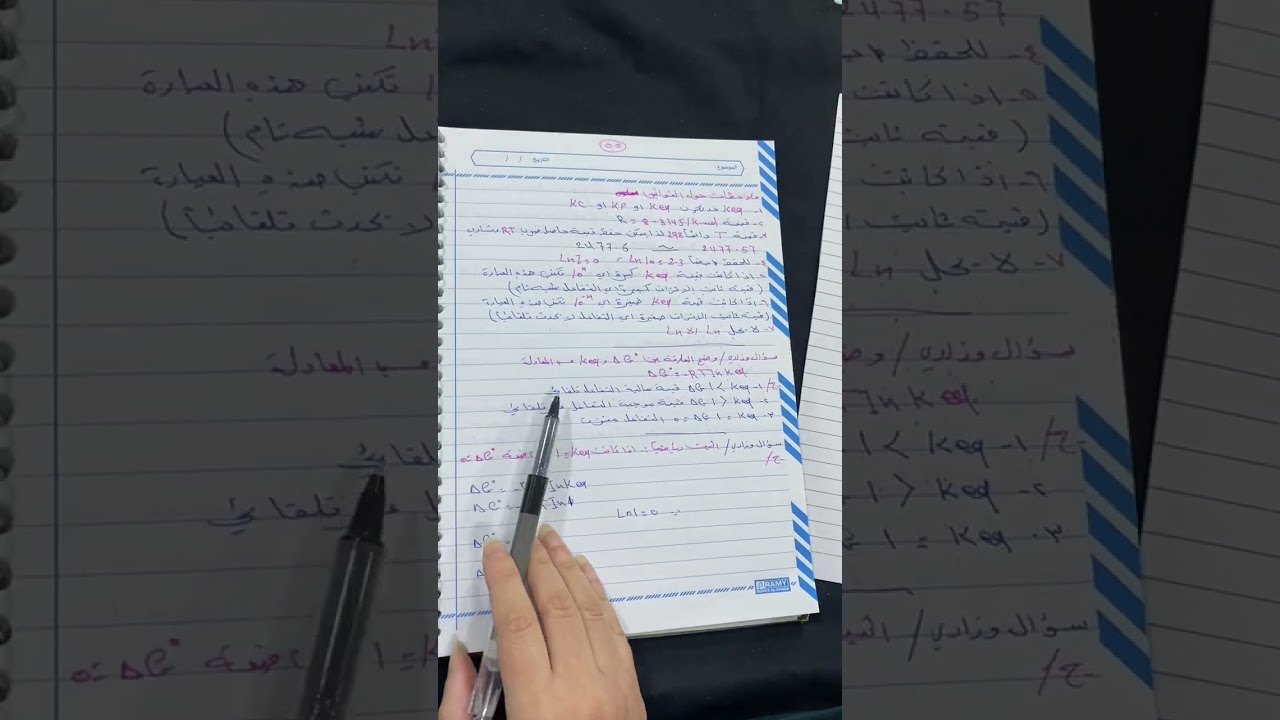 ٥٥
الموضوع: التاريخ / /
ملاحظات حول القوانين
١- Keq قد تكون Keq او KP او KC
٢- قيمة R = 8.314 J/K.mol
٣- قيمة T دائماً 298 لذا يمكن حفظ قيمة حاصل ضرب RT
2477.57 ~ 2477.6
٤- للحفظ Ln10 = 2.3 ، Ln1 = 0
٥- اذا كانت قيمة Keq كبيرة اي 10ⁿ تكتب هذه العبارة
(قيمة ثابت الاتزان كبيرة اي التفاعل شبه تام)
٦- اذا كانت قيمة Keq صغيرة اي 10⁻ⁿ تكتب هذه العبارة
(قيمة ثابت الاتزان صغيرة اي التفاعل لا يحدث تلقائياً)
٧- لا يحل Ln الا Ln
سؤال وزاري/ وضح العلاقة بين ΔG° و Keq حسب المعادلة
ΔG° = -RT ln Keq
ج/ ١- Keq > 1 ΔG قيمة سالبة التفاعل تلقائي
٢- Keq < 1 ΔG قيمة موجبة التفاعل تلقائي
٣- Keq = 1 ΔG = 0 التفاعل متزن
سؤال وزاري/ اثبت رياضياً: اذا كانت Keq = 1 ΔG° = 0
ج/
ΔG° = ln Keq
ΔG° = ln 1
Ln1 = 0
ΔG°
RAMY